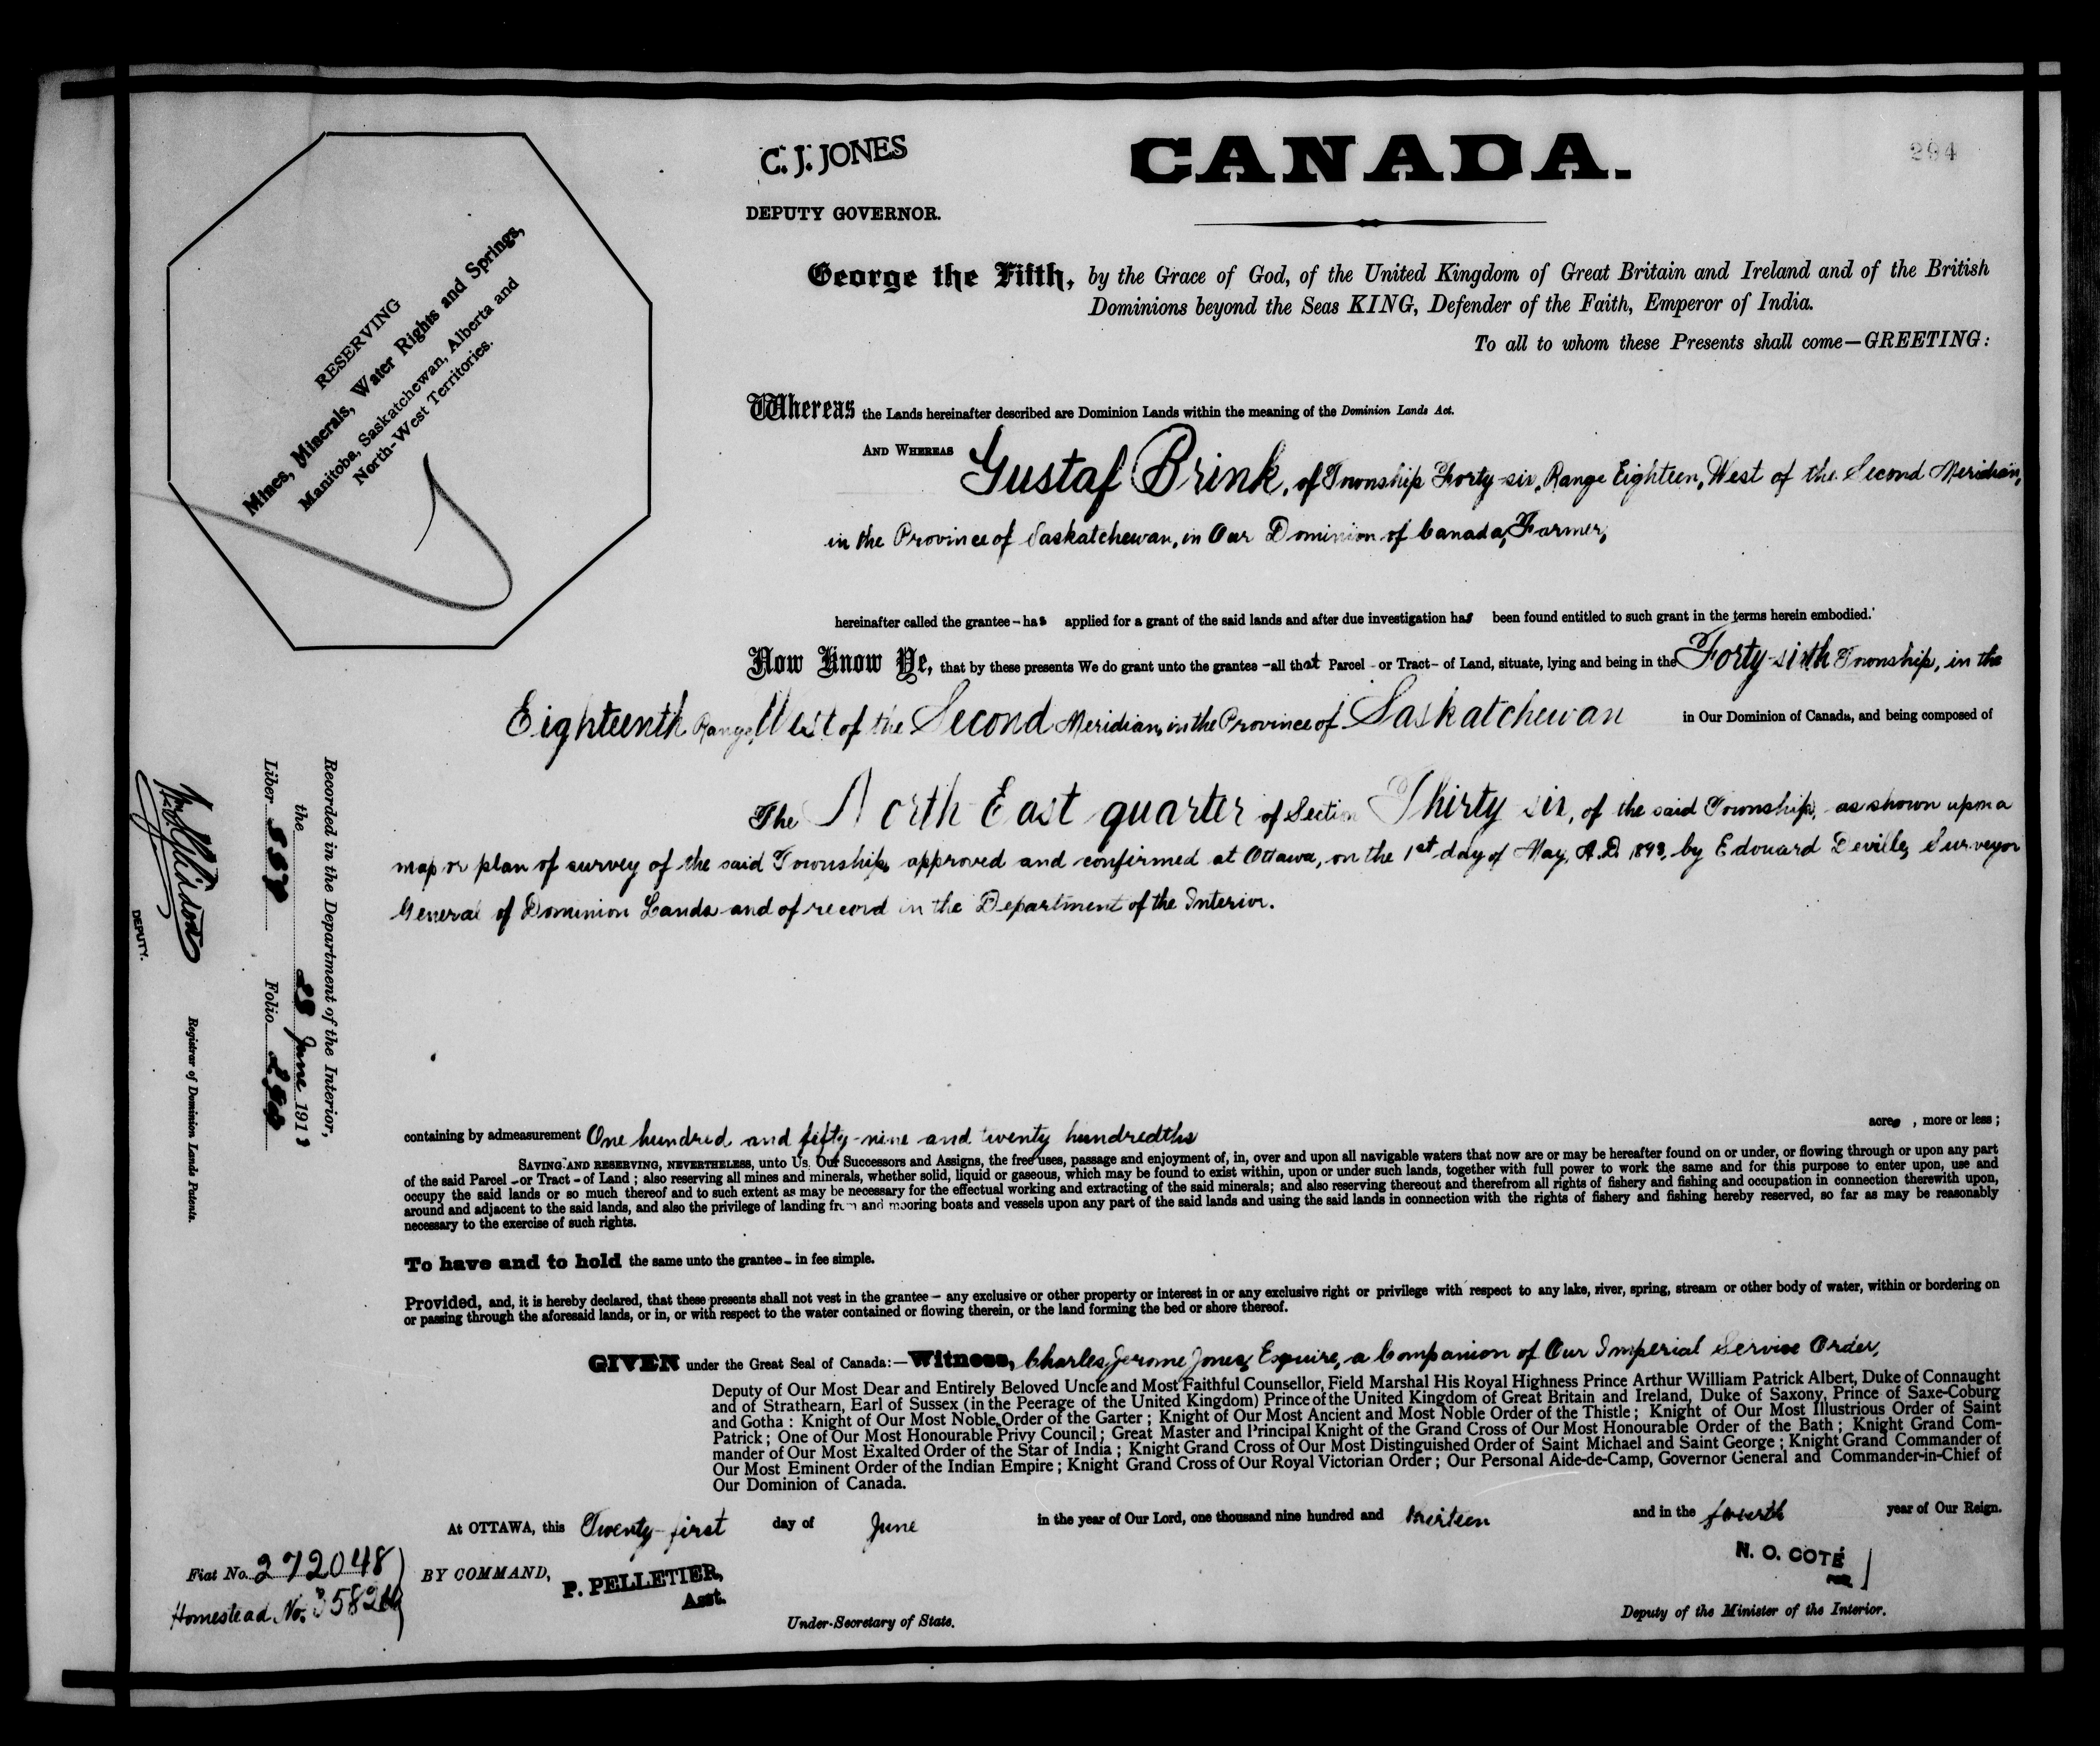 C. J. JONES
DEPUTY GOVERNOR.
CANADA.
294
RESERVING
Mines, Minerals, Water Rights and Springs,
Manitoba, Saskatchewan, Alberta and
North-West Territories.
George the Fifth, by the Grace of God, of the United Kingdom of Great Britain and Ireland and of the British
Dominions beyond the Seas KING, Defender of the Faith, Emperor of India.
To all to whom these Presents shall come—GREETING:
Whereas the Lands hereinafter described are Dominion Lands within the meaning of the Dominion Lands Act.
AND WHEREAS Gustaf Brink, of Township Forty-six, Range Eighteen, West of the Second Meridian,
in the Province of Saskatchewan, in Our Dominion of Canada, Farmer,
hereinafter called the grantee - has applied for a grant of the said lands and after due investigation has been found entitled to such grant in the terms herein embodied.
Now Know Ye, that by these presents We do grant unto the grantee - all that Parcel - or Tract - of Land, situate, lying and being in the Forty-sixth Township, in the
Eighteenth Range, West of the Second Meridian, in the Province of Saskatchewan in Our Dominion of Canada, and being composed of
The North East quarter of Section Thirty six, of the said Township, as shown upon a
map or plan of survey of the said Township, approved and confirmed at Ottawa, on the 1st day of May, A.D. 1893, by Edouard Deville, Surveyor
General of Dominion Lands and of record in the Department of the Interior.
Recorded in the Department of the Interior,
the 28 June 1913
Liber 557 Folio 294
DEPUTY.
Registrar of Dominion Lands Patents.
containing by admeasurement One hundred and fifty-nine and twenty hundredths acres , more or less ;
SAVING AND RESERVING, NEVERTHELESS, unto Us, Our Successors and Assigns, the free uses, passage and enjoyment of, in, over and upon all navigable waters that now are or may be hereafter found on or under, or flowing through or upon any part
of the said Parcel - or Tract - of Land ; also reserving all mines and minerals, whether solid, liquid or gaseous, which may be found to exist within, upon or under such lands, together with full power to work the same and for this purpose to enter upon, use and
occupy the said lands or so much thereof and to such extent as may be necessary for the effectual working and extracting of the said minerals; and also reserving thereout and therefrom all rights of fishery and fishing and occupation in connection therewith upon,
around and adjacent to the said lands, and also the privilege of landing from and mooring boats and vessels upon any part of the said lands and using the said lands in connection with the rights of fishery and fishing hereby reserved, so far as may be reasonably
necessary to the exercise of such rights.
To have and to hold the same unto the grantee - in fee simple.
Provided, and, it is hereby declared, that these presents shall not vest in the grantee - any exclusive or other property or interest in or any exclusive right or privilege with respect to any lake, river, spring, stream or other body of water, within or bordering on
or passing through the aforesaid lands, or in, or with respect to the water contained or flowing therein, or the land forming the bed or shore thereof.
GIVEN under the Great Seal of Canada:—Witness, Charles Jerome Jones, Esquire, a Companion of Our Imperial Service Order,
Deputy of Our Most Dear and Entirely Beloved Uncle and Most Faithful Counsellor, Field Marshal His Royal Highness Prince Arthur William Patrick Albert, Duke of Connaught
and of Strathearn, Earl of Sussex (in the Peerage of the United Kingdom) Prince of the United Kingdom of Great Britain and Ireland, Duke of Saxony, Prince of Saxe-Coburg
and Gotha : Knight of Our Most Noble Order of the Garter ; Knight of Our Most Ancient and Most Noble Order of the Thistle ; Knight of Our Most Illustrious Order of Saint
Patrick ; One of Our Most Honourable Privy Council ; Great Master and Principal Knight of the Grand Cross of Our Most Honourable Order of the Bath ; Knight Grand Com-
mander of Our Most Exalted Order of the Star of India ; Knight Grand Cross of Our Most Distinguished Order of Saint Michael and Saint George ; Knight Grand Commander of
Our Most Eminent Order of the Indian Empire ; Knight Grand Cross of Our Royal Victorian Order ; Our Personal Aide-de-Camp, Governor General and Commander-in-Chief of
Our Dominion of Canada.
At OTTAWA, this Twenty-first day of June in the year of Our Lord, one thousand nine hundred and thirteen and in the fourth year of Our Reign.
Fiat No. 272048
Homestead No.
BY COMMAND,
P. PELLETIER,
Asst.
Under-Secretary of State.
N. O. COTÉ
FOR
Deputy of the Minister of the Interior.